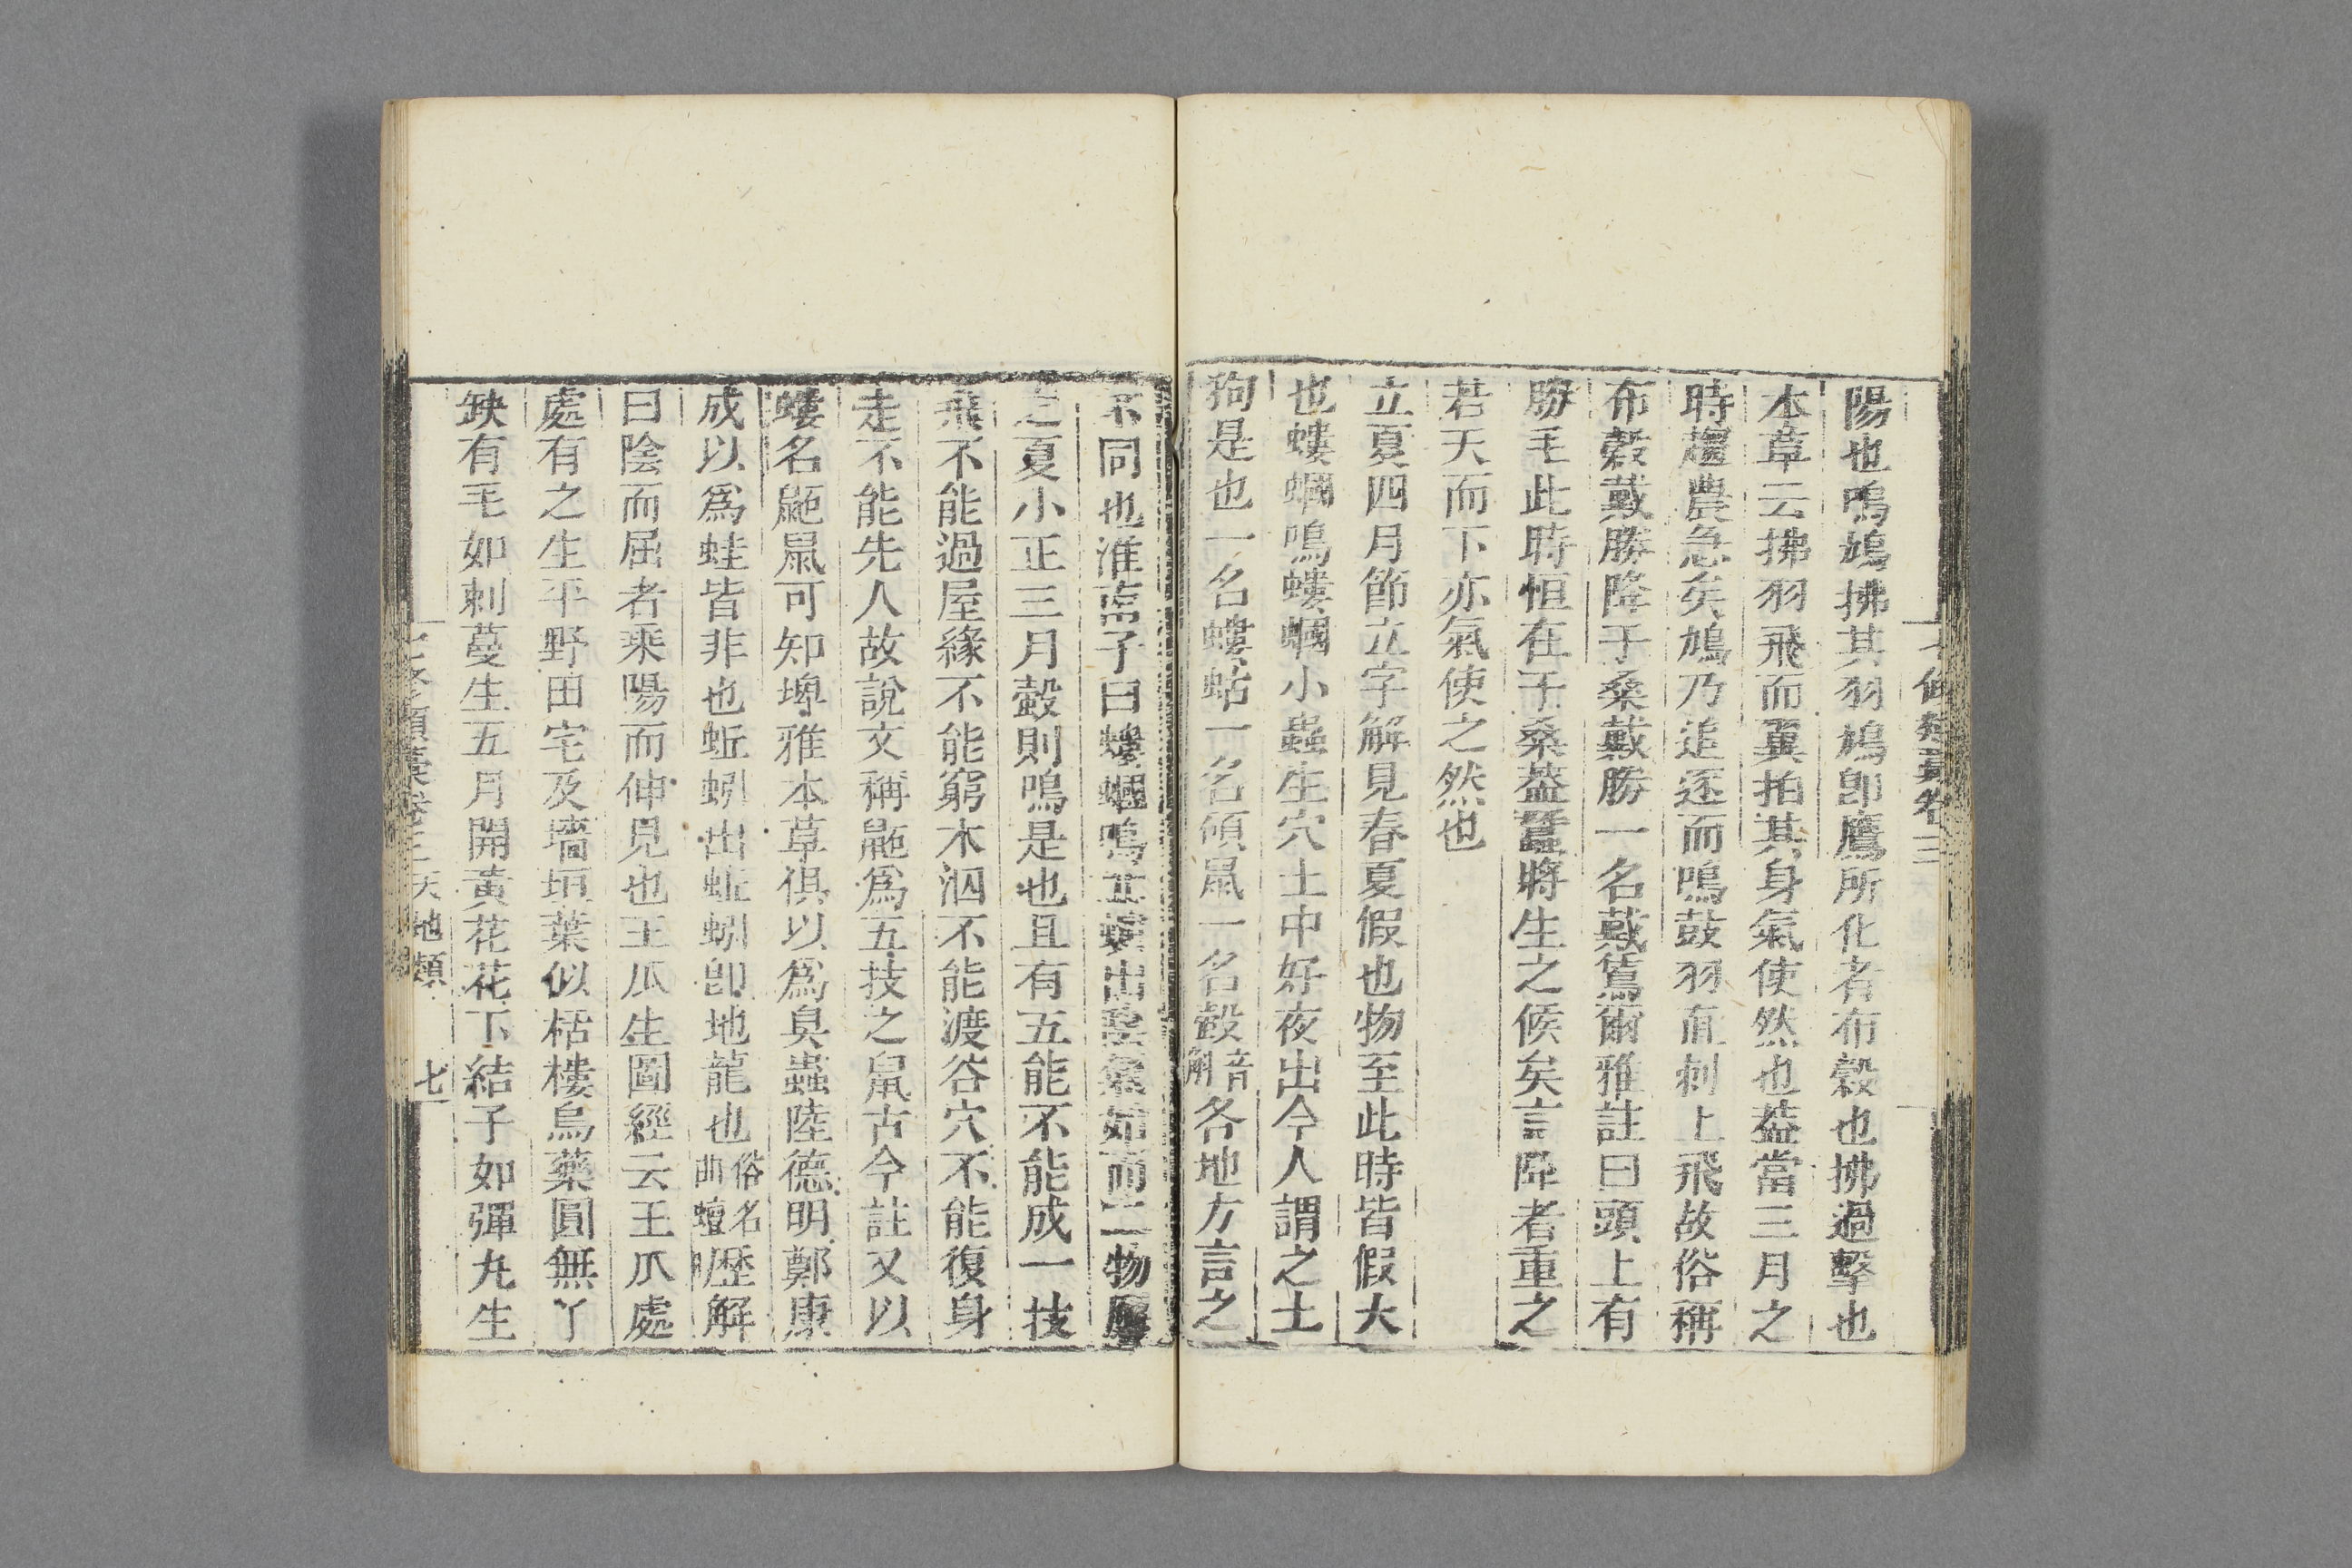 陽也鳴鳩拂其羽鳩卽鷹所化者布穀也拂過擊也
本草云拂羽飛而翼拍其身氣使然也葢當三月之
時趨農急矣鳩乃追逐而鳴鼓羽直刺上飛故俗稱
布穀戴勝降于桑戴勝一名戴鵀爾雅註曰頭上有
勝毛此時恒在于桑葢蠶將生之候矣言降者重之
若天而下亦氣使之然也
立夏四月節立字解見春夏假也物至此時皆假大
也螻蟈鳴螻蟈小蟲生穴土中好夜出今人謂之土
狗是也一名螻蛄一名碩鼠一名㲄音斛各地方言之
不同也淮南子曰螻蟈鳴丘螾出陰氣始而二物應
之夏小正三月㲄則鳴是也且有五能不能成一技
飛不能過屋緣不能窮木泅不能渡谷穴不能復身
走不能先人故說文稱鼫爲五技之鼠古今註又以
螻名鼫鼠可知埤雅本草俱以爲臭蟲陸德明鄭康
成以爲蛙皆非也蚯蚓出蚯蚓卽地龍也俗名曲蟮歷解
曰陰而屈者乘陽而伸見也王瓜生圖經云王瓜處
處有之生平野田宅及墻垣葉似栝樓烏藥圓無丫
缺有毛如刺蔓生五月開黃花花下結子如彈丸生
七修類藁卷三 天地類 七